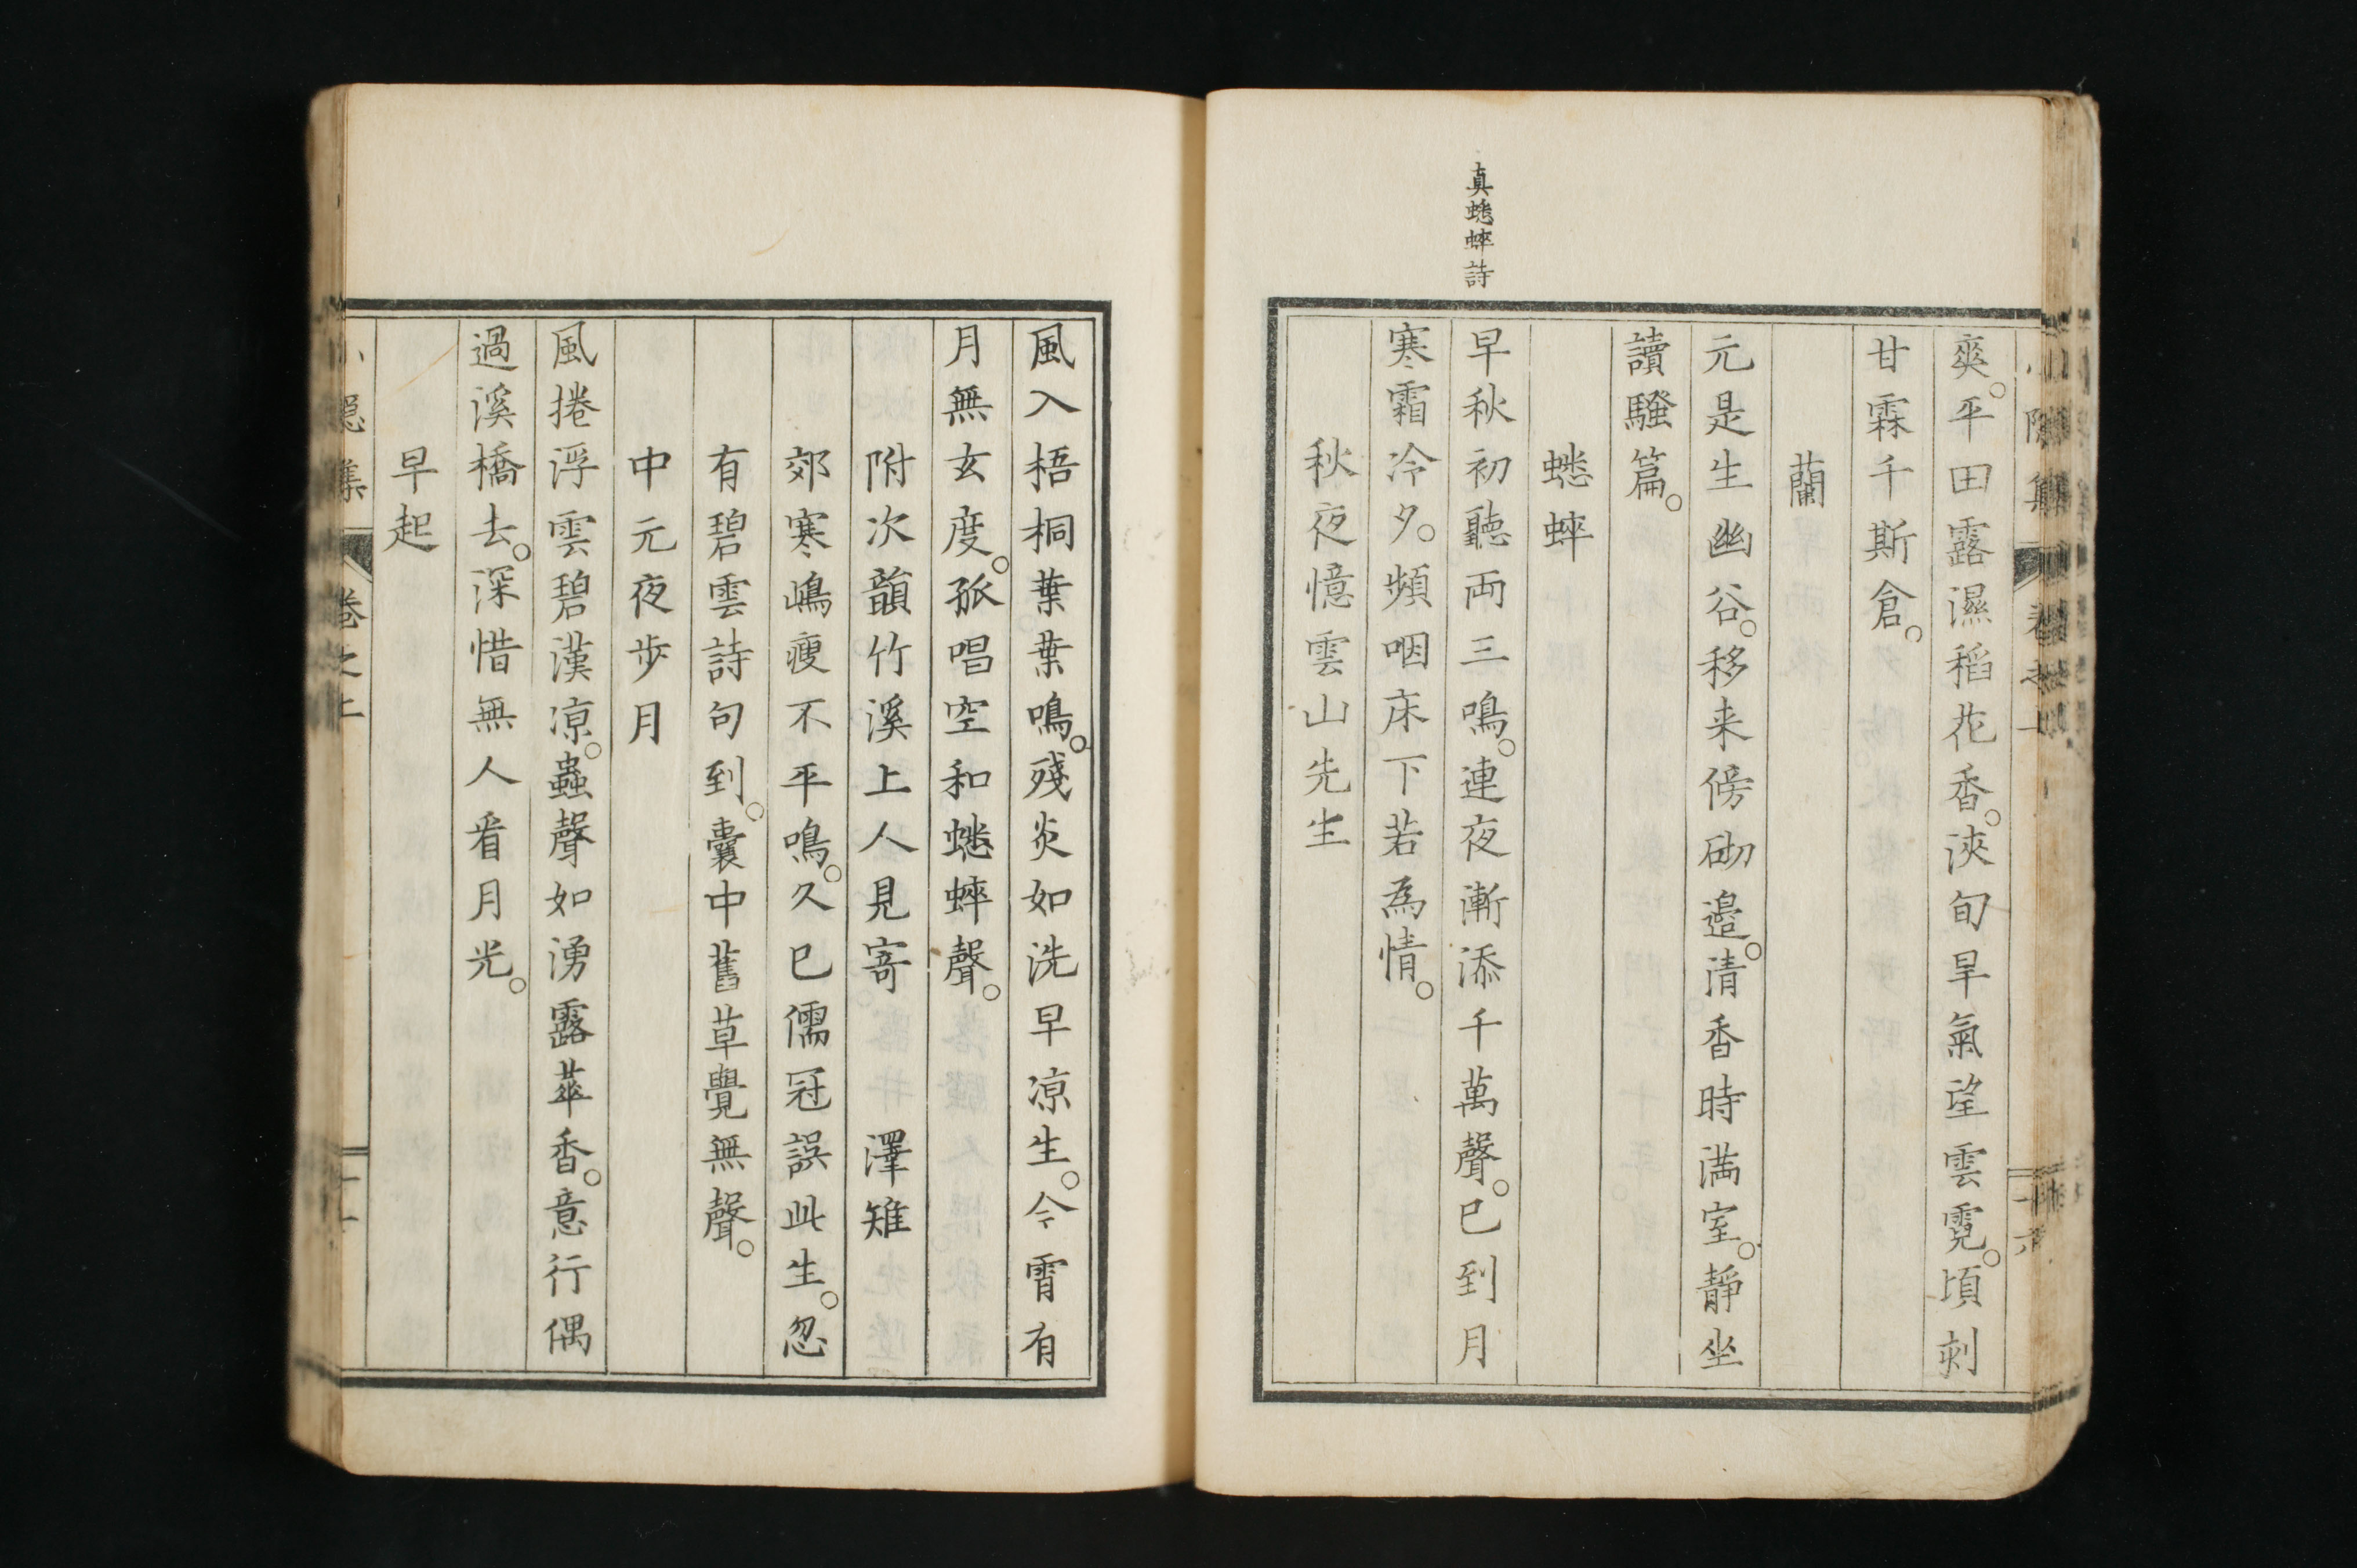 爽。平田露濕稻花香。浹旬旱氣望雲霓。頃刺
甘霖千斯倉。
蘭
元是生幽谷。移来傍砌邉。清香時満室。靜坐
讀騷篇。
蟋蟀
真蟋蟀詩
早秋初聽両三鳴。連夜漸添千萬聲。已到月
寒霜冷夕。頻咽床下若為情。
秋夜憶雲山先生
風入梧桐葉葉鳴。殘炎如洗早凉生。今霄有
月無玄度。孤唱空和蟋蟀聲。
附次韻竹溪上人見寄 澤雉
郊寒嶋瘦不平鳴。久已儒冠誤此生。忽
有碧雲詩句到。囊中舊草覺無聲。
中元夜歩月
風捲浮雲碧漢凉。蟲聲如湧露華香。意行偶
過溪橋去。深惜無人看月光。
早起
隠集 卷之上